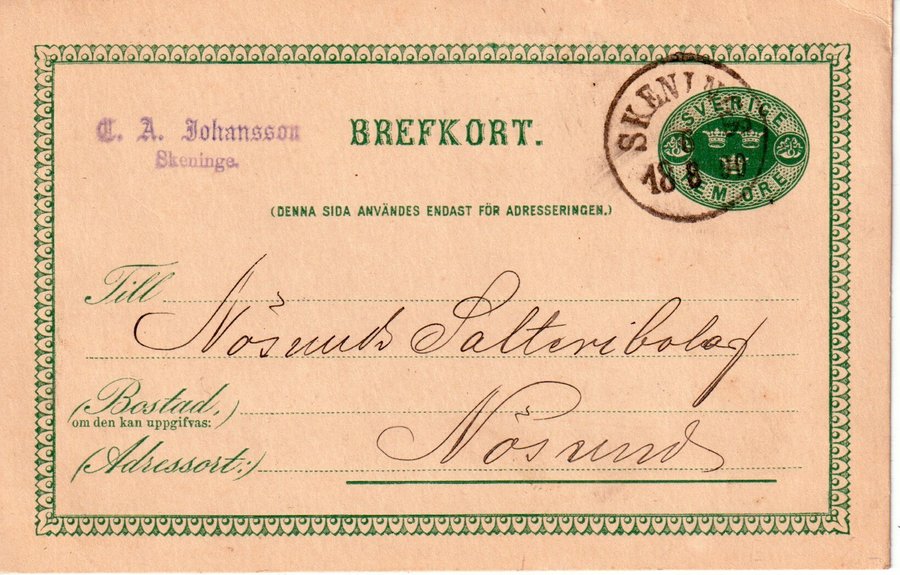 C. A. Johansson
Skeninge.
BREFKORT.
SKENIN
SVERIGE
6
18 8
FEM ÖRE
(DENNA SIDA ANVÄNDES ENDAST FÖR ADRESSERINGEN.)
Till
Nösunds Salteribolag
(Bostad,)
om den kan uppgifvas:
Nösund
(Adressort:)